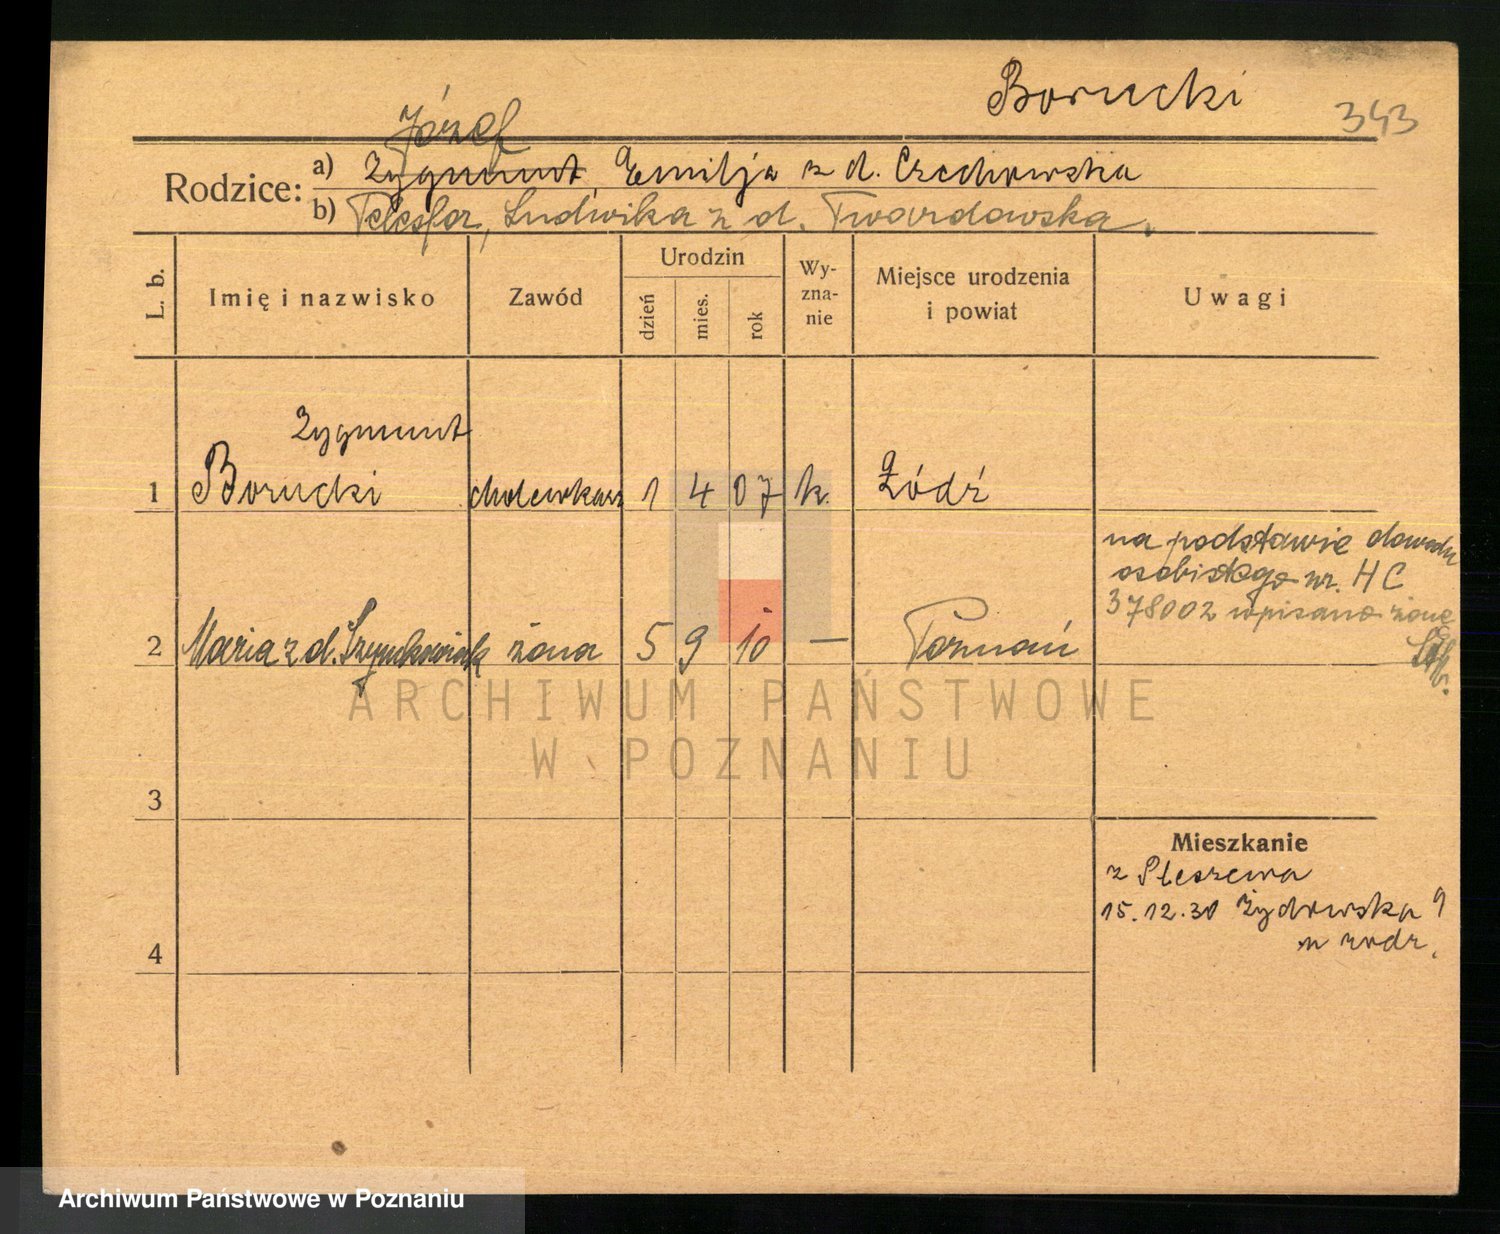 Borucki
343
Józef
Rodzice: a) Zygmunt, Emilja z d. Czechowska
b) Telesfor, Ludwika z d. Twardowska.
L. b.
Imię i nazwisko
Zawód
Urodzin
dzień
mies.
rok
Wy-
zna-
nie
Miejsce urodzenia
i powiat
Uwagi
Zygmunt
1 Borucki cholewkarz 1 4 07 k. Łódź
na podstawie dowodu
osobistego nr. HC
378002 wpisano żonę
2 Maria z d. Szymkowiak żona 5 9 10 — Poznań
ARCHIWUM PAŃSTWOWE
W POZNANIU
3
Mieszkanie
z Pleszewa
15.12.30 Żydowska 9
4
Archiwum Państwowe w Poznaniu